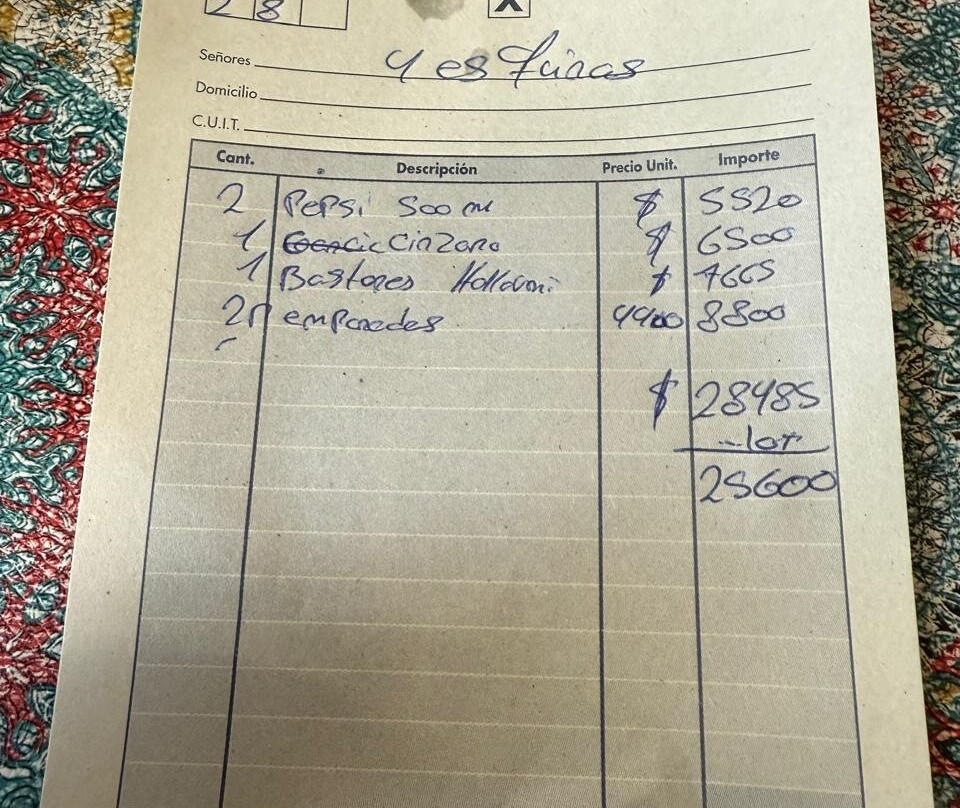 2 8
X
Señores 4 esquinas
Domicilio
C.U.I.T.
Cant. Descripción Precio Unit. Importe
2 Pepsi 500 ml $ 5520
1 Cinzano $ 6500
1 Bastones $ 7665
2 4400 8800
$ 28485
-10%
25600